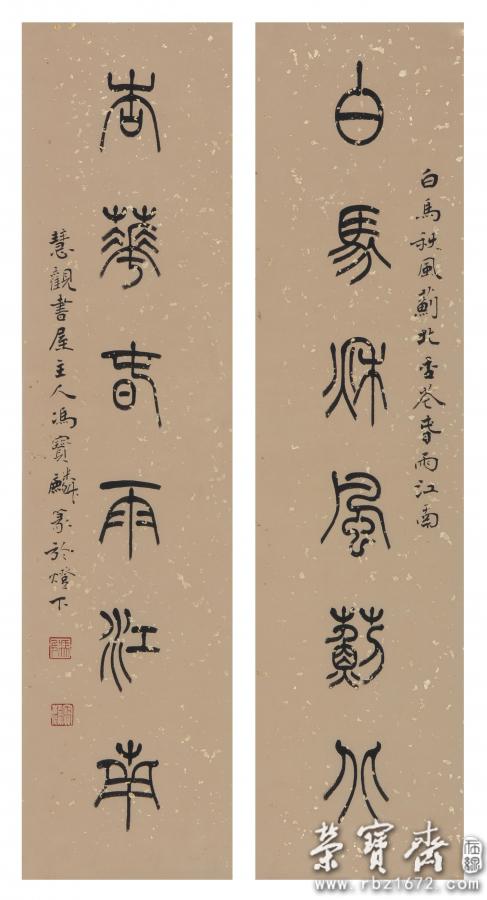 白馬秋風薊北杏花春雨江南
白馬秋風薊北
杏華春雨江南
慧觀書屋主人馮寶麟篆於燈下
榮寶齋
在線
www.rbz1672.com